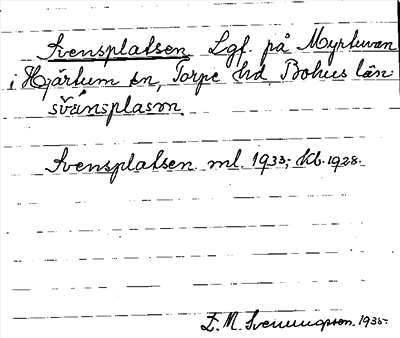 Svensplatsen Lgf. på Myrtuvan
i Hjärtum sn, Torpe hd Bohus län.
svä́nsplasən.
Svensplatsen ml. 1933; kb. 1928.
E. M. Svenungsson. 1935.